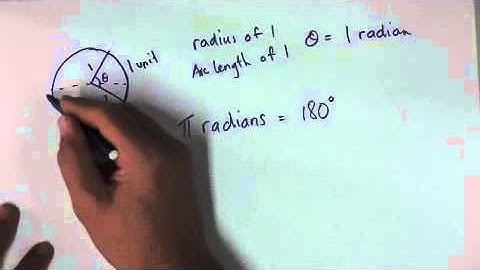 radius of 1
Arc length of 1
θ = 1 radian
1
θ
1
1 unit
π radians = 180°